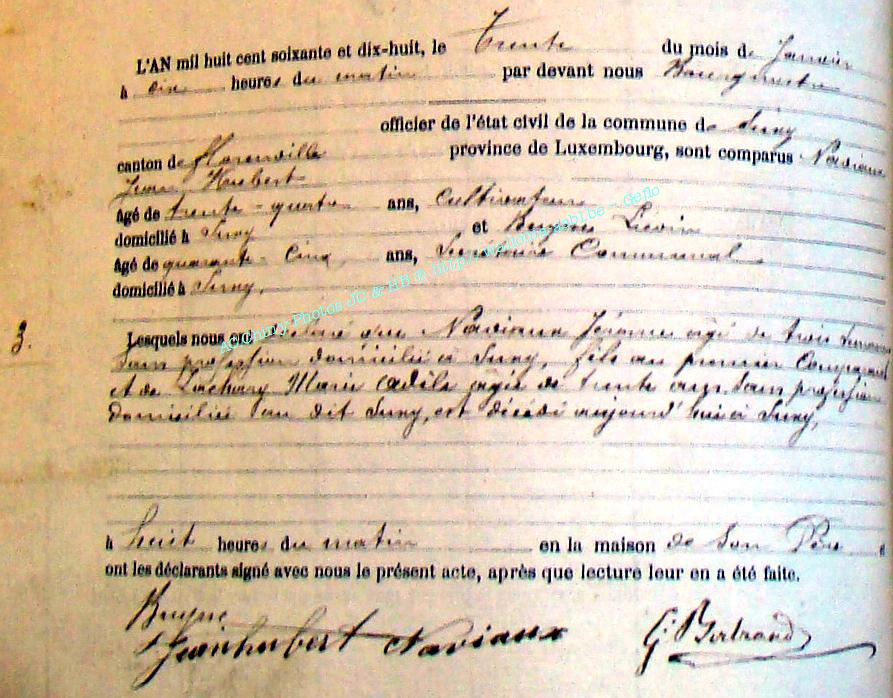 L'AN mil huit cent soixante et dix-huit, le Trente du mois de Janvier
à dix heures du matin par devant nous Bourgmestre
officier de l'état civil de la commune de Suxy
canton de Florenville province de Luxembourg, sont comparus Naviaux
Jean Hubert
âgé de trente-quatre ans, Cultivateur
domicilié à Suxy et Bruyne
âgé de quarante-cinq ans, Secrétaire Communal
domicilié à Suxy,
3.
Lesquels nous ont déclaré que Naviaux Jérome agé de trois semaines
sans profession domicilié à Suxy, fils au premier Comparant
et de Zachary Marie Adèle agée de trente ans, sans profession
domiciliée au dit Suxy, est décédé aujourd'hui à Suxy,
à huit heures du matin en la maison de son Père
ont les déclarants signé avec nous le présent acte, après que lecture leur en a été faite.
Jeanhubert Naviaux
G. Bertrand
Photos JC &